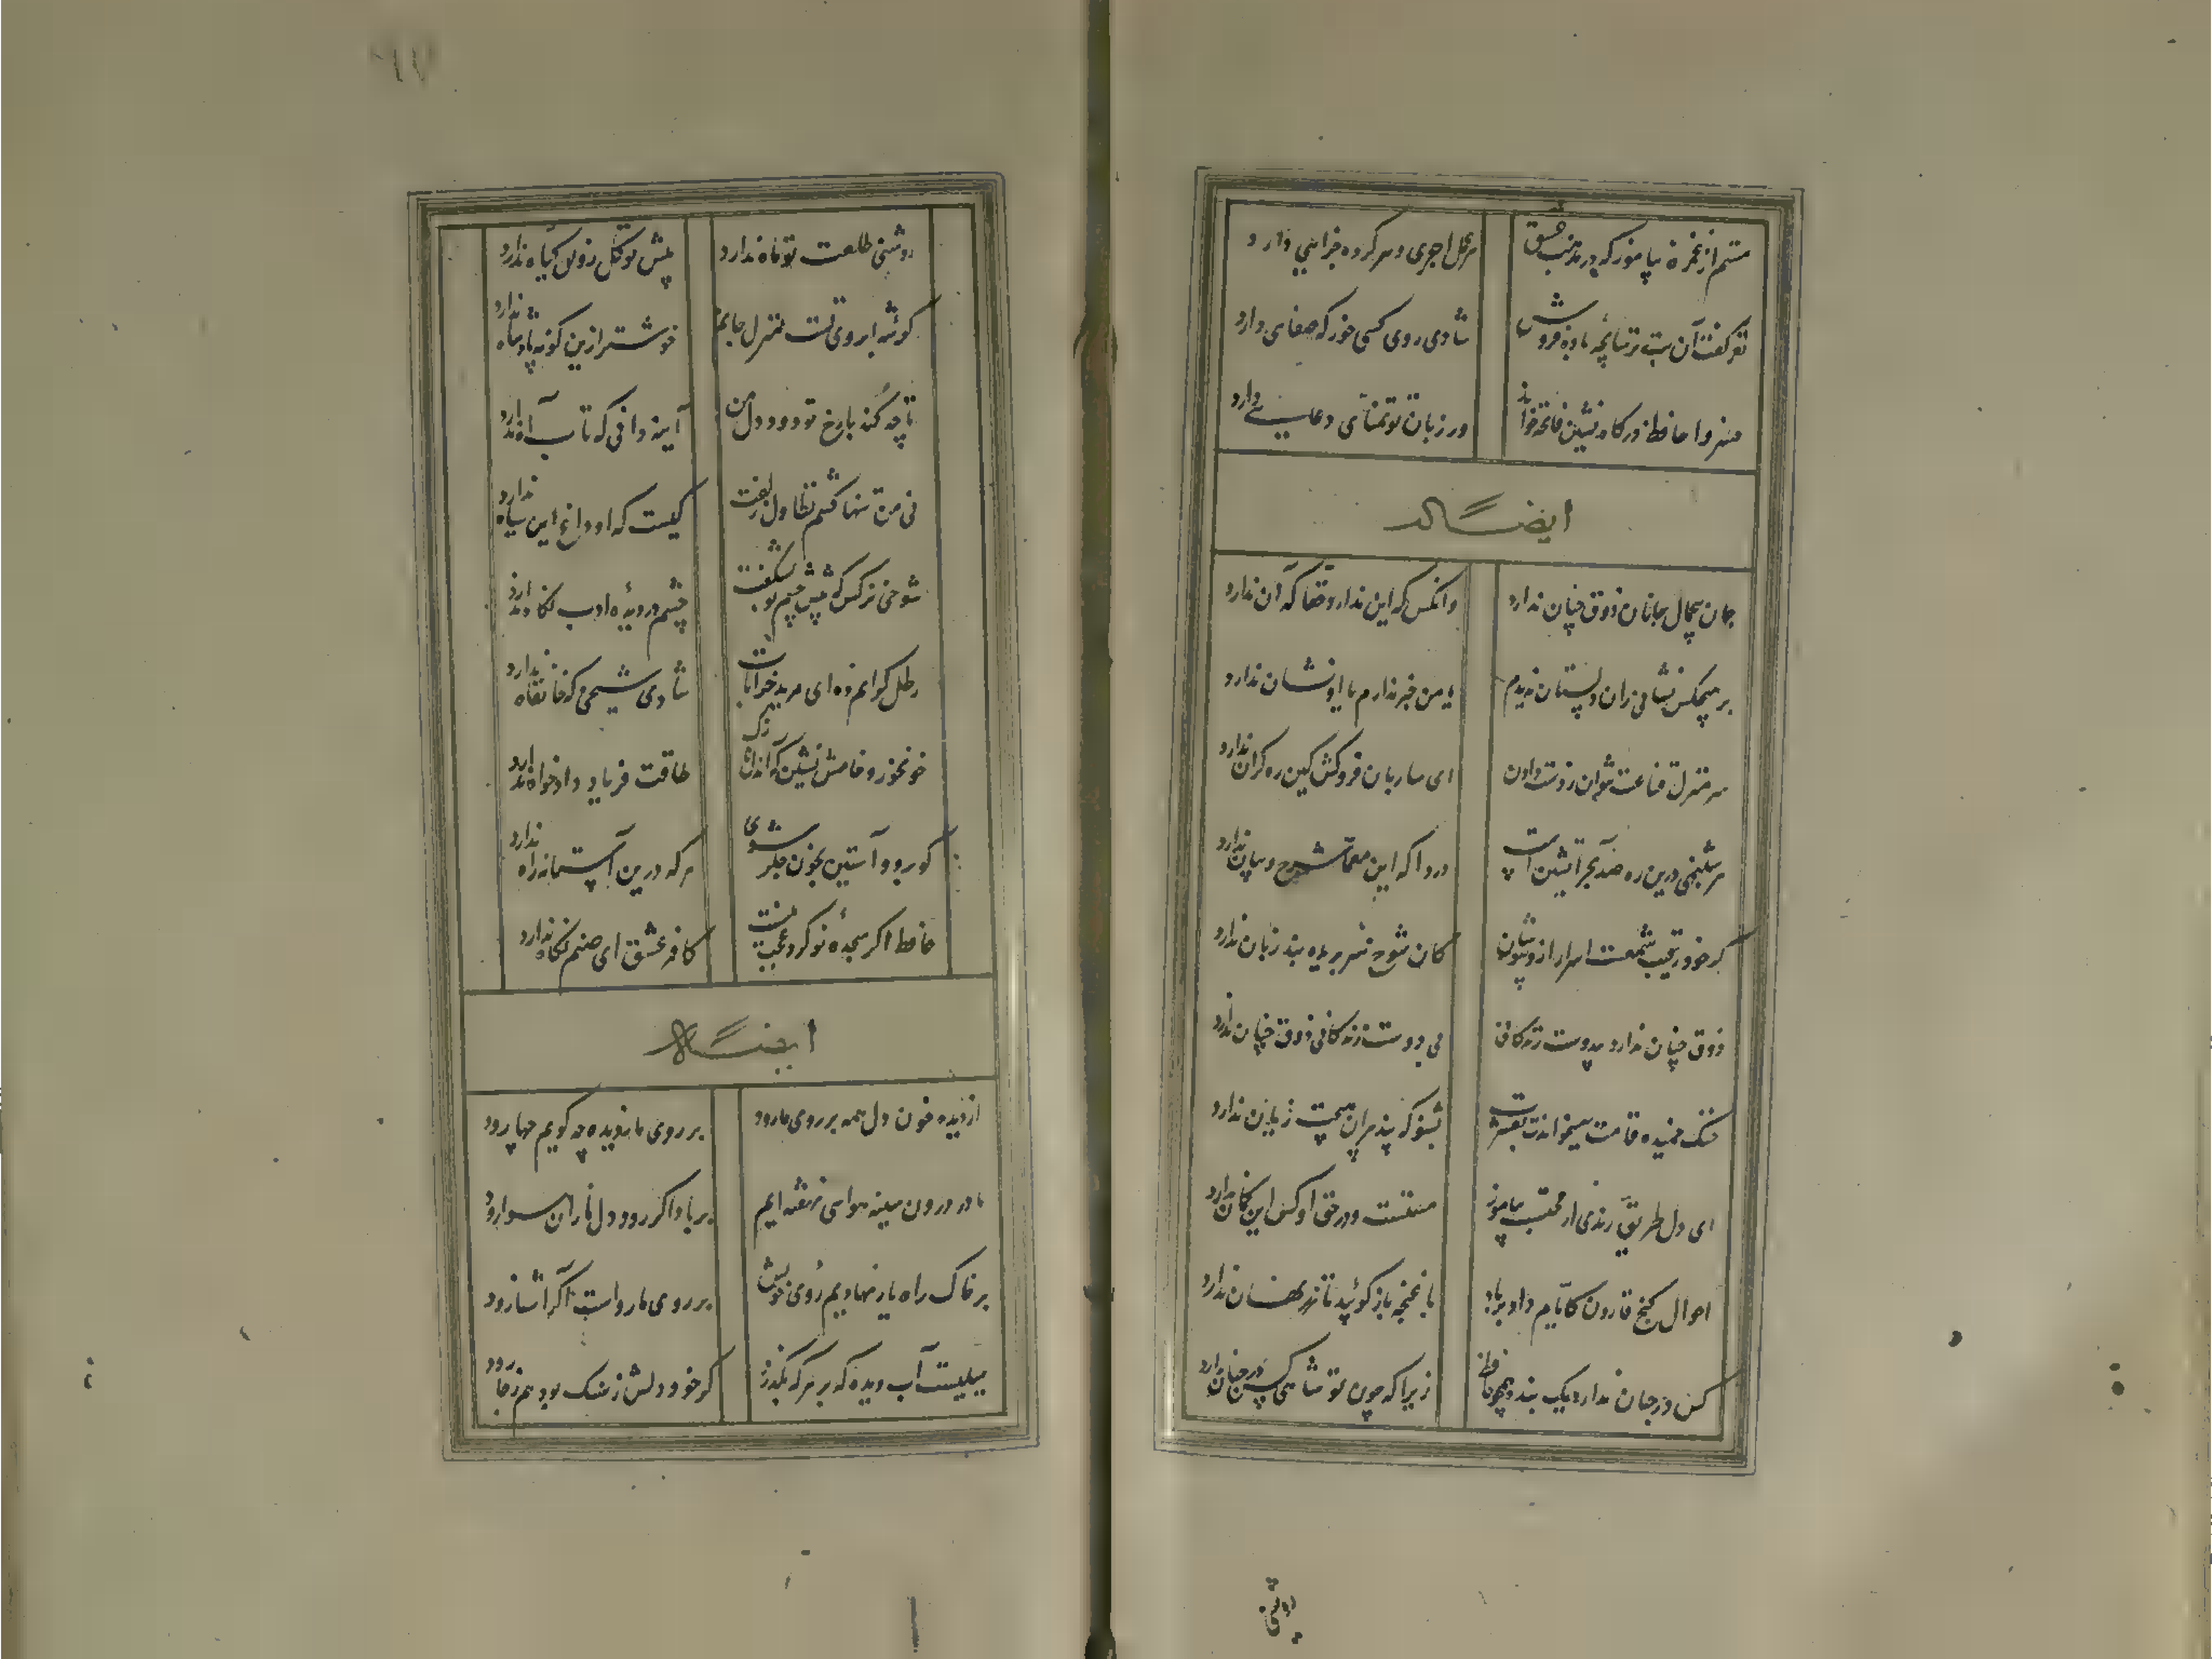 ستم از غمزه میاموز که در مذهب عشق
هر عمل اجری و هر کرده جزایی دارد
نغز گفت آن بت ترسابچه باده فروش
شادی روی کسی خور که صفایی دارد
خسروا حافظ درگاه نشین فاتحه خواند
وز زبان تو تمنای دعایی دارد
ایضاً له
جان بیجمال جانان ذوق چنان ندارد
وانکس که این ندارد حقا که آن ندارد
بر هیچکس نشانی زان دلستان ندیدم
یا من خبر ندارم یا او نشان ندارد
سر منزل قناعت نتوان ز دست دادن
ای ساربان فروکش کین ره کران ندارد
هر شبنمی درین ره صد بحر آتشین است
دردا که این معما شرح و بیان ندارد
گر خود رقیب شمعست اسرار ازو بپوشان
کان شوخ سر بریده بند زبان ندارد
ذوق چنان ندارد بیدوست زندگانی
بی دوست زندگانی ذوق چنان ندارد
چنگ خمیده قامت میخواندت بعشرت
بشنو که پند پیران هیچت زیان ندارد
ای دل طریق رندی از محتسب بیاموز
مستست و در حق او کس این گمان ندارد
احوال گنج قارون کایام داد بر باد
با غنچه باز گوئید تا زر نهان ندارد
کس در جهان ندارد یک بنده همچو حافظ
زیرا که چون تو شاهی کس در جهان ندارد
روشنی
روشنی طلعت تو ماه ندارد
پیش تو گل رونق گیاه ندارد
گوشه ابروی تست منزل جانم
خوشتر ازین گوشه پادشاه ندارد
تا چه کند با رخ تو دود دل من
آینه دانی که تاب آه ندارد
نی من تنها کشم تطاول زلفت
کیست که او داغ این سیاه ندارد
شوخی نرگس که پیش چشم تو بشکفت
چشم دریده ادب نگاه ندارد
رطل گرانم ده ای مرید خرابات
شادی شیخی که خانقاه ندارد
خون خور و خامش نشین که آن دل نازک
طاقت فریاد دادخواه ندارد
گو برو و آستین بخون جگر شوی
هر که درین آستانه راه ندارد
حافظ اگر سجده تو کرد عجب نیست
کافر عشق ای صنم گناه ندارد
ایضاً له
از دیده خون دل همه بر روی ما رود
بر روی ما ز دیده چه گویم چها رود
ما در درون سینه هوایی نهفته ایم
بر باد اگر رود دل ما زان هوا رود
بر خاک راه یار نهادیم روی خویش
بر روی ما رواست اگر آشنا رود
سیلیست آب دیده که بر هر که بگذرد
گر خود دلش ز سنگ بود هم ز جا رود